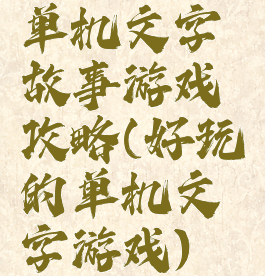 单机文字
故事游戏
攻略(好玩
的单机文
字游戏)